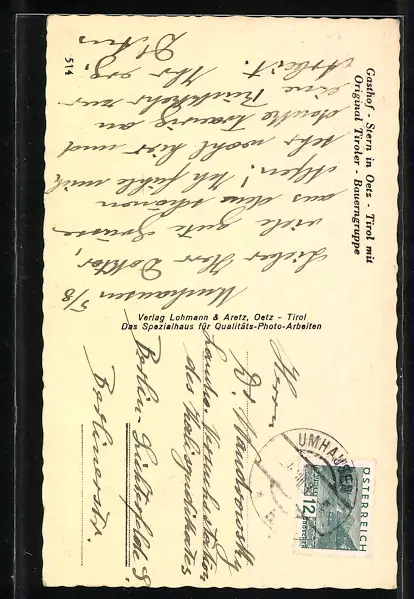 Gasthof - Stern in Oetz - Tirol mit
Original Tiroler - Bauerngruppe
514
Umhausen 5/8
Lieber Herr Doktor,
viele gute Grüsse
aus den schönen
Alpen! Ich fühle mich
sehr wohl hier und
denke traurig an
eine Rückkehr zur
Arbeit.
Ihr erg.
Verlag Lohmann & Aretz, Oetz - Tirol
Das Spezialhaus für Qualitäts-Photo-Arbeiten
Herrn
Dr.
des Kalisyndikates
Berlin-Lichterfelde S.
Berlinerstr.
UMHAUSEN
ÖSTERREICH
12
GROSCHEN